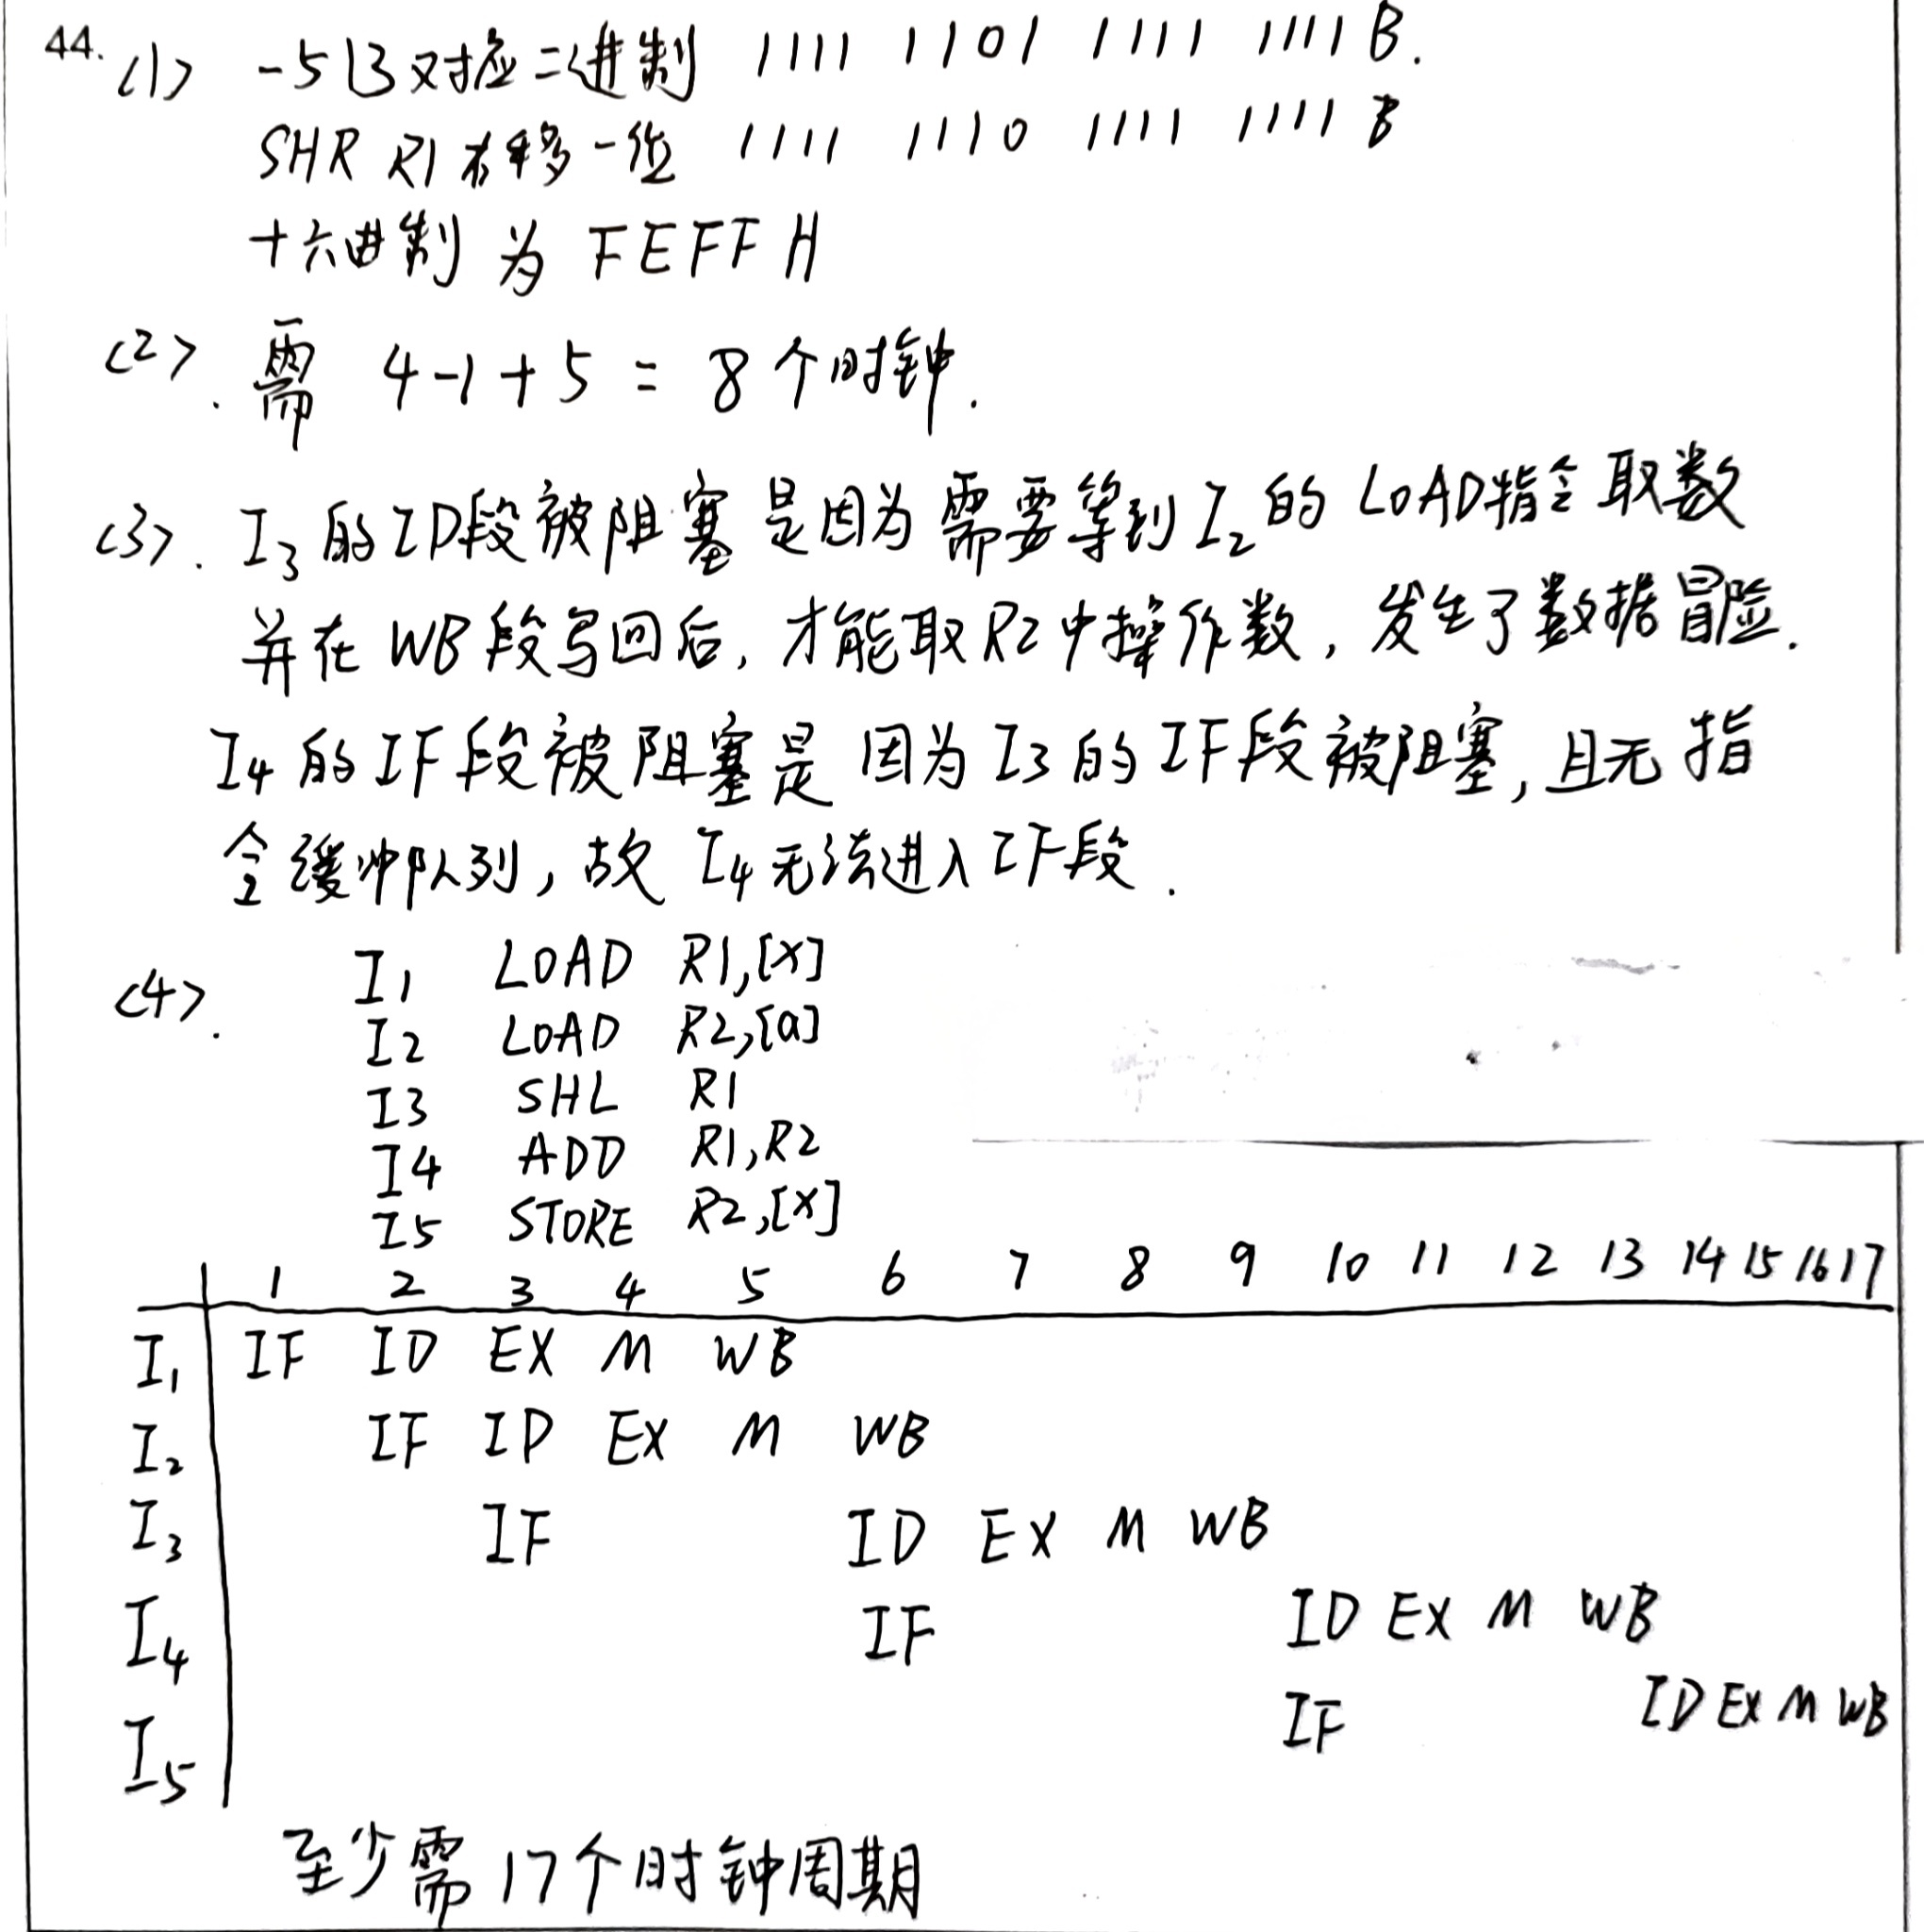 44.
(1) -513对应二进制 1111 1101 1111 1111B.
SHR R1右移一位 1111 1110 1111 1111B
十六进制为 FEFFH
(2). 需 4-1+5=8个时钟.
(3). I3的ID段被阻塞是因为需要等到I2的LOAD指令取数
并在WB段写回后,才能取R2中操作数,发生了数据冒险.
I4的IF段被阻塞是因为I3的IF段被阻塞,且无指
令缓冲队列,故I4无法进入IF段.
(4). I1 LOAD R1,[x]
I2 LOAD R2,[a]
I3 SHL R1
I4 ADD R1,R2
I5 STORE R2,[x]
1 2 3 4 5 6 7 8 9 10 11 12 13 14 15 16 17
I1 IF ID EX M WB
I2 IF ID EX M WB
I3 IF ID EX M WB
I4 IF ID EX M WB
I5 IF ID EX M WB
至少需17个时钟周期